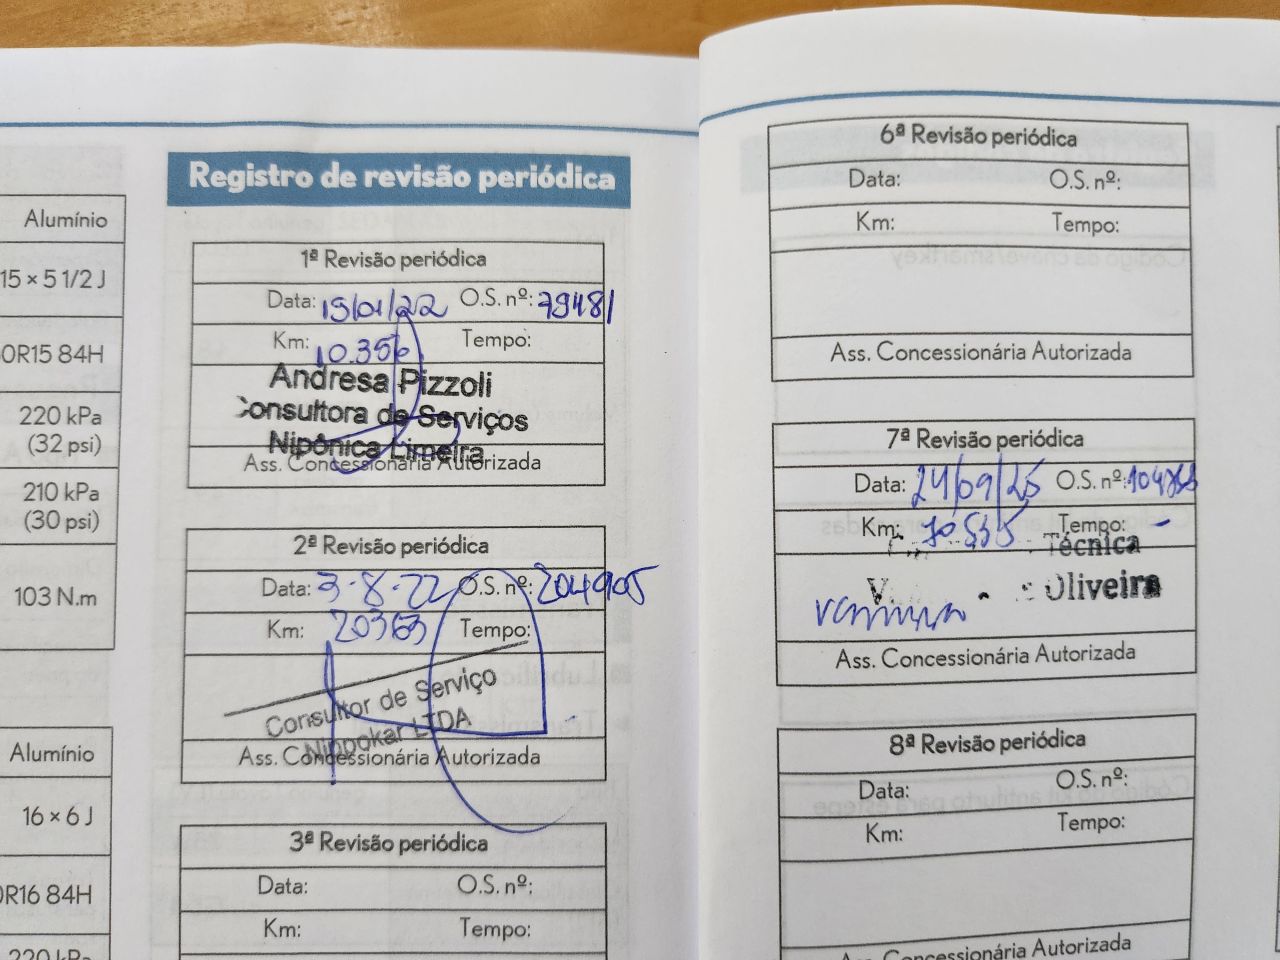 Alumínio
15 × 5 1/2 J
0R15 84H
220 kPa
(32 psi)
210 kPa
(30 psi)
103 N.m
Alumínio
16 × 6 J
0R16 84H
220 kPa
Registro de revisão periódica
1ª Revisão periódica
Data: 19/01/22 O.S. nº: 79481
Km: 10.356 Tempo:
Andresa Pizzoli
Consultora de Serviços
Nipônica Limeira
Ass. Concessionária Autorizada
2ª Revisão periódica
Data: 3-8-22 O.S. nº: 204905
Km: 20363 Tempo:
Consultor de Serviço
Nippokar LTDA
Ass. Concessionária Autorizada
3ª Revisão periódica
Data: O.S. nº:
Km: Tempo:
6ª Revisão periódica
Data: O.S. nº:
Km: Tempo:
Ass. Concessionária Autorizada
7ª Revisão periódica
Data: 24/09/25 O.S. nº:
Km: 70535 Tempo: -
Técnica
Oliveira
Ass. Concessionária Autorizada
8ª Revisão periódica
Data: O.S. nº:
Km: Tempo:
Ass. Concessionária Autorizada